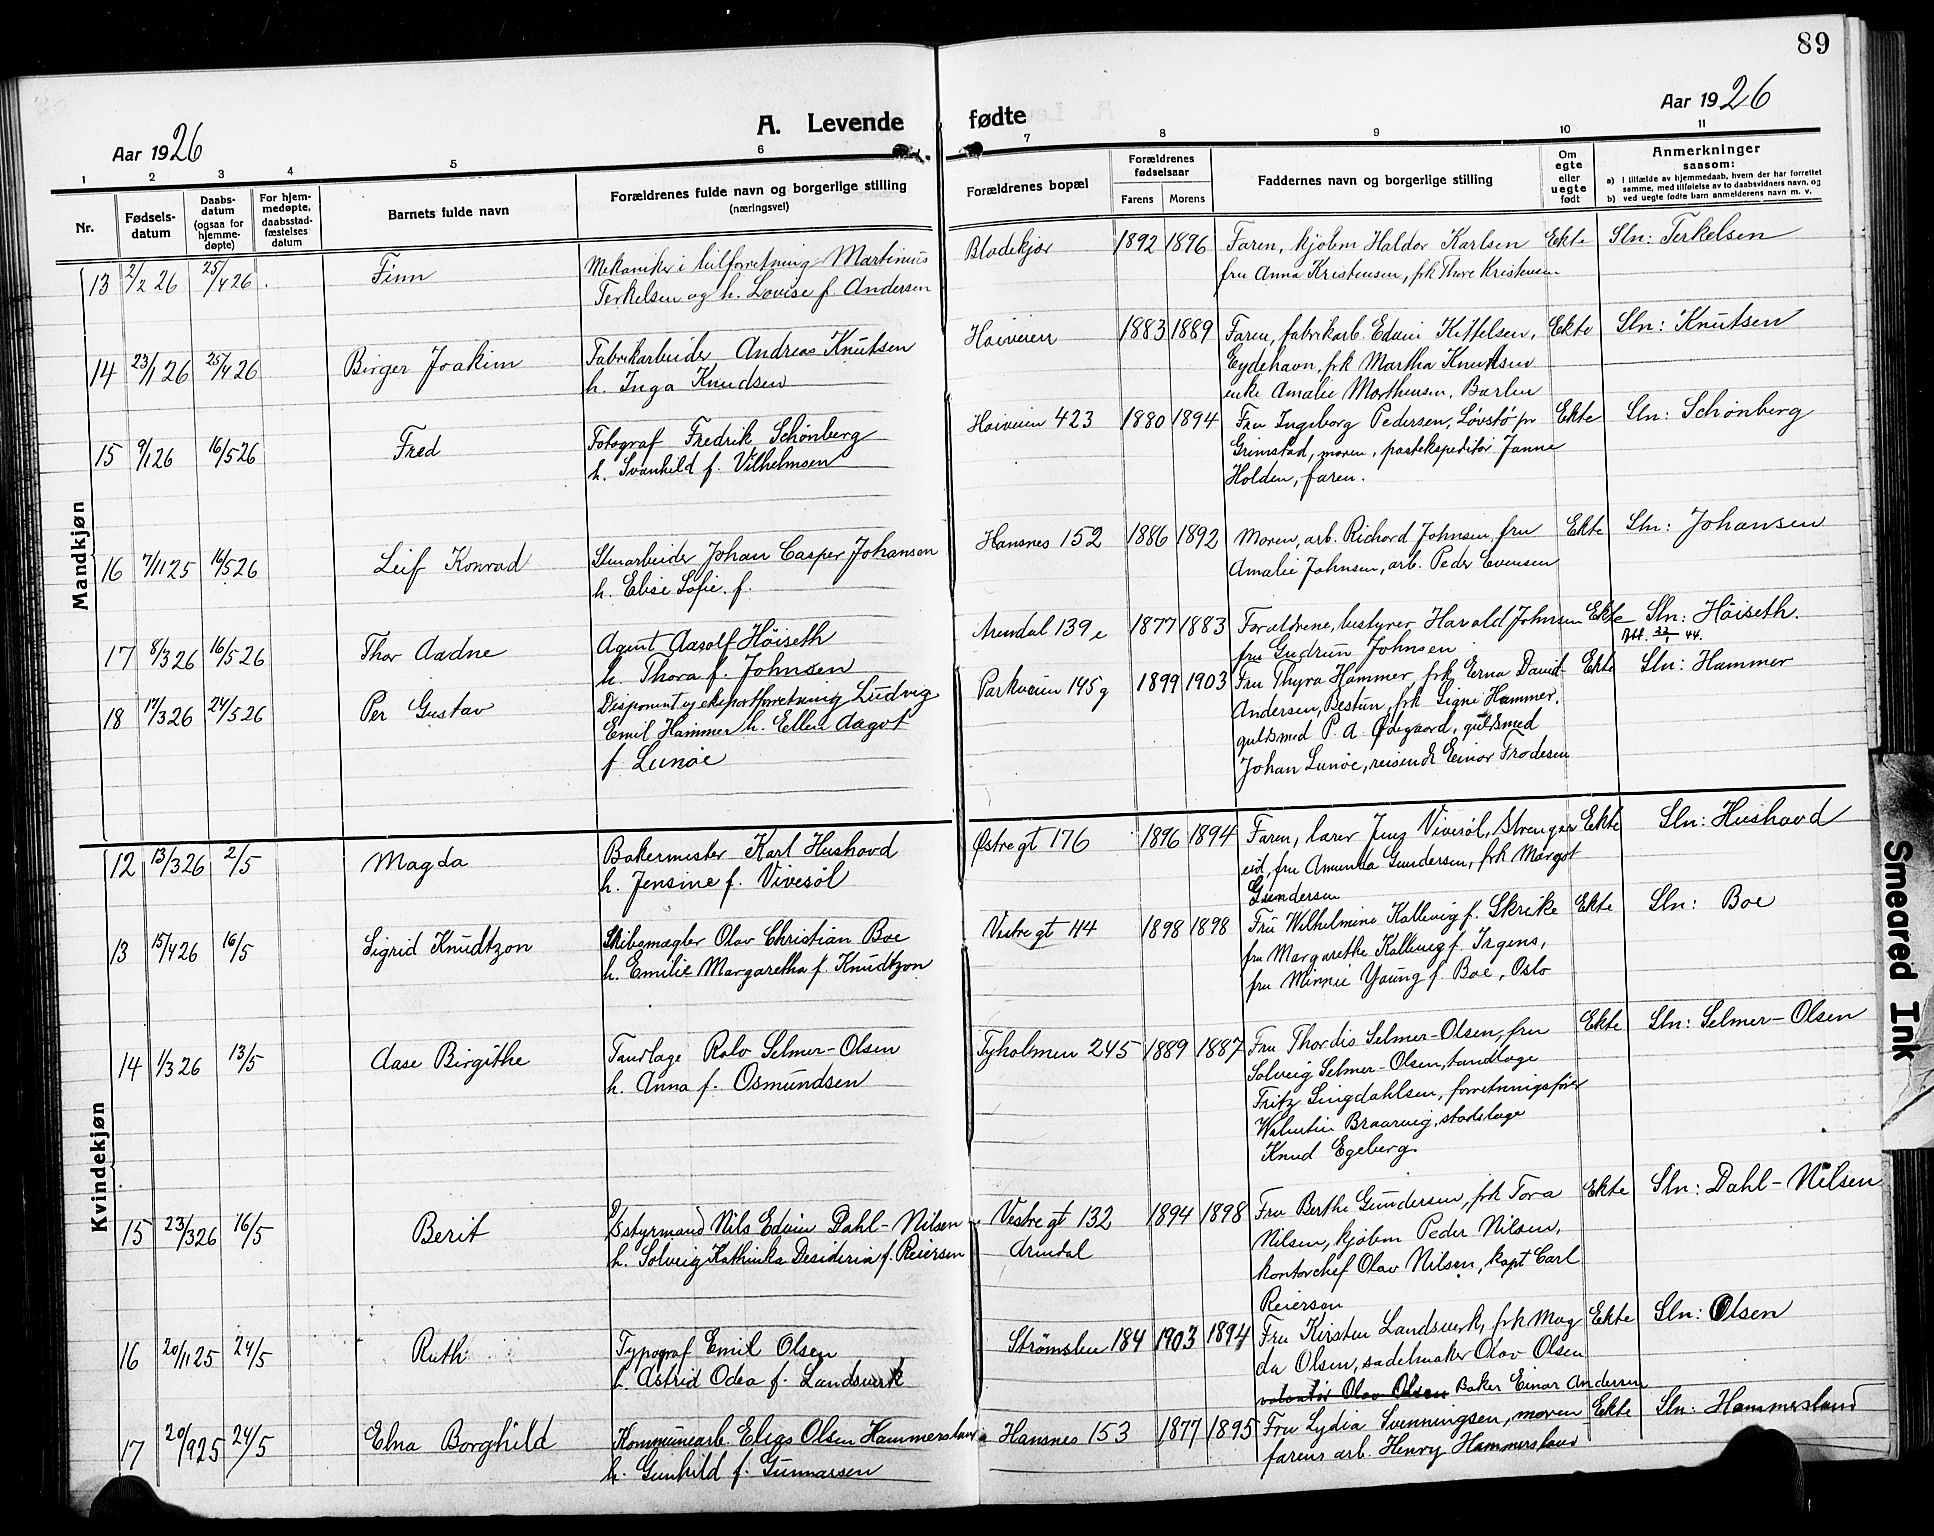 89
Aar 1926
A. Levende fødte
Aar 1926
1 2 3 4 5 6 7 8 9 10 11
Nr.
Fødsels-
datum
Daabs-
datum
(ogsaa for
hjemme-
døpte)
For hjem-
medøpte,
daabsstad-
fæstelses
datum
Barnets fulde navn
Forældrenes fulde navn og borgerlige stilling
(næringsvei)
Forældrenes bopæl
Forældrenes
fødselsaar
Farens Morens
Faddernes navn og borgerlige stilling
Om
egte
eller
uegte
født
Anmerkninger
saasom:
a) I tilfælde av hjemmedaab, hvem der har forrettet
samme, med tilføielse av to daabsvidners navn, og
b) ved uegte fødte barn anmelderens navn m. v.
Mandkjøn
13 2/2 26 25/4 26 Finn
Mekaniker i bilforretning Martinius
Terkelsen og h. Lovise f. Andersen
Blødekjær 1892 1896
Faren, kjøbm Haldor Karlsen
fru Anna Kristensen, frk Thore Kristensen
Ekte Sln: Terkelsen
14 23/1 26 25/4 26 Birger Joakim
Fabrikarbeider Andreas Knutsen
h. Inga Knudsen
Høiveien 1883 1889
Faren, fabrikarb. Edvin Kittelsen,
Eydehavn, frk Martha Knutsen
enke Amalie Morthensen, Barlen
Ekte Sln: Knutsen
15 9/1 26 16/5 26 Fred
Fotograf Fredrik Schönberg
h. Svanhild f. Vilhelmsen
Høiveien 423 1880 1894
Fru Ingeborg Pedersen, Løvstø pr
Grimstad, moren, postekspeditør Janne
Holden, faren.
Ekte Sln: Schönberg
16 7/11 25 16/5 26 Leif Konrad
Stenarbeider Johan Casper Johansen
h. Elise Sofie f.
Hansnes 152 1886 1892
Moren, arb. Richard Johnsen, fru
Amalie Johnsen, arb. Peder Evensen
Ekte Sln: Johansen
17 8/3 26 16/5 26 Thor Aadne
Agent Aasolf Höiseth
h. Thora f. Johnsen
Arendal 139 e 1877 1883
Forældrene, bestyrer Harald Johnsen
fru Gudrun Johnsen
Ekte Sln: Höiseth.
44.
18 17/3 26 24/5 26 Per Gustav
Disponent og eksportforretning Ludvig
Emil Hammer h. Ellen Aagot
f Lunöe
Parkveien 145 g 1899 1903
Fru Thyra Hammer, frk Erna David-
Andersen, Bestun, frk Signe Hammer,
guldsmed P. A. Ødegaard, guldsmed
Johan Lunöe, reisende Einar Frodesen
Ekte Sln: Hammer
Kvindekjøn
12 13/3 26 2/5 Magda
Bakermester Karl Hushovd
h. Jensine f. Vivesöl
Østregt 176 1896 1894
Faren, lærer Jens Vivesöl, Strengen
eid, fru Amunda Gundersen, frk Margot
Gundersen
Ekte Sln: Hushovd
13 15/4 26 16/5 Sigrid Knudtzon
Skibsmægler Olav Christian Boe
h. Emilie Margaretha f. Knudtzon
Vestregt 44 1898 1898
Fru Wilhelmine Kallevig f. Skrike
fru Margarethe Kallevig f. Irgens,
fru Minnie Young f. Boe, Oslo
Ekte Sln: Boe
14 1/3 26 13/5 Aase Birgithe
Tandlæge Rolv Selmer-Olsen
h. Anna f. Osmundsen
Tyholmen 245 1889 1887
Fru Thordis Selmer-Olsen, fru
Solveig Selmer-Olsen, tandlæge
Fritz Lingdahlsen, forretningsfører
Valentin Braarvig, stadslæge
Knud Egeberg.
Ekte Sln: Selmer-Olsen
15 23/3 26 16/5 Berit
D/S styrmand Nils Edvin Dahl-Nilsen
h. Solveig Kathinka Desideria f. Reiersen
Vestregt 132 1894 1898
Arendal
Fru Berthe Gundersen, frk Tora
Nilsen, kjøbm Peder Nilsen,
kontorchef Olav Nilsen, kapt Carl
Reiersen
Ekte Sln: Dahl-Nilsen
16 20/11 25 24/5 Ruth
Typograf Emil Olsen
h. Astrid Odea f. Landsverk
Strømsbu 184 1903 1894
Fru Kirsten Landsverk, frk Mag
da Olsen, sadelmaker Olav Olsen
Olav Olsen Baker Einar Andersen
Ekte Sln: Olsen
17 20/9 25 24/5 Elna Borghild
Kommunearb Elias Olsen Hammersland
h. Gunhild f. Gunnarsen
Hansnes 153 1877 1895
Fru Lydia Svenningsen, moren
farens arb. Henry Hammersland
Ekte Sln: Hammersland
Smeared Ink